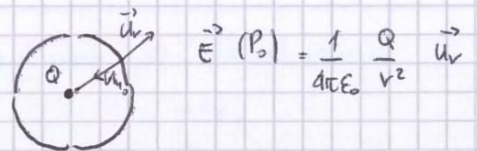 u⃗r
Q
E⃗ (P₀) = 1/(4πε₀) Q/r² u⃗r